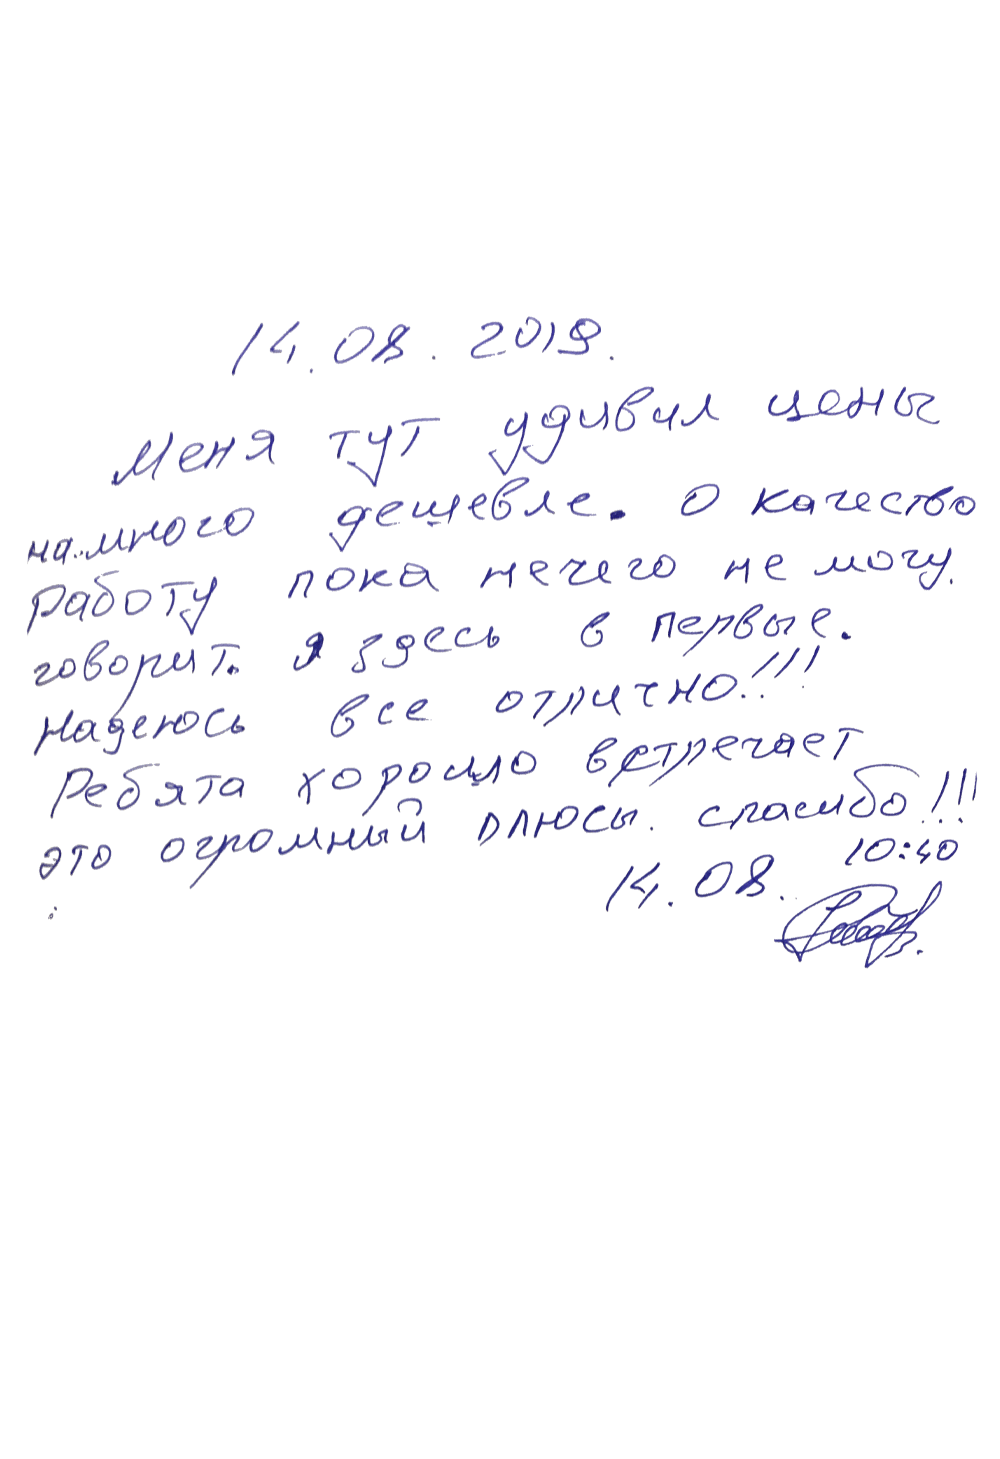 14.08.2019.
Меня тут удивил цены
на много дешевле. О качество
работу пока нечего не могу.
говорит. Я здесь в первые.
Надеюсь все отлично!!!
Ребята хорошо встречает
это огромный плюсы. спасибо!!!
14.08. 10:40